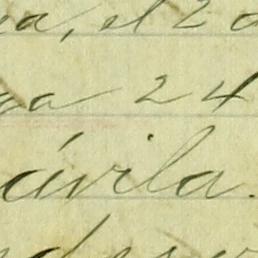 a, el 2 d
ga 24
ávila.